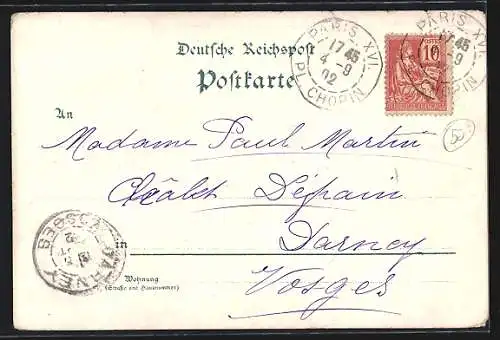 Deutsche Reichspost
Postkarte
PARIS XVI.
17 45
4 - 9
02
PL. CHOPIN
10
An
Madame Paul Martin
Dépain
in Darney
Vosges
Wohnung
(Straße und Hausnummer)
DARNEY
VOSGES
55